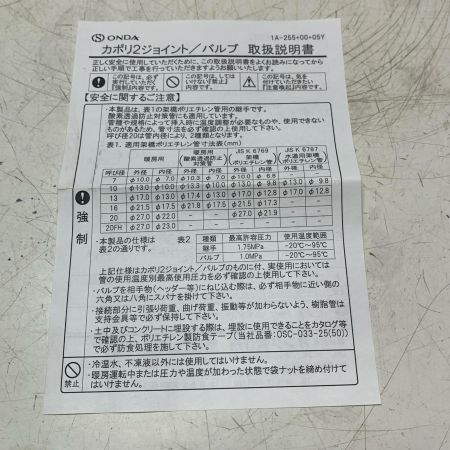 ONDA 1A-255+00+05Y
カポリ2ジョイント／バルブ 取扱説明書
正しく安全に使用していただくために、この取扱説明書をよくお読みになってから
正しい手順で工事を行っていただきますようお願いいたします。
この記号は、必ず実行していただく「強制」内容です。
この記号は、してはいけない「禁止」内容です。
この記号は、気を付けていただきたい「注意喚起」内容です。
【安全に関するご注意】
・本製品は、表1の架橋ポリエチレン管用の継手です。
酸素透過防止対策管にも適用しています。
管種や規格によって挿入時に温度調整が必要なものや、使用できない
ものがあるため、管寸法を必ず確認の上使用して下さい。
呼び径20は管内径により、2種類となりますので確認下さい。
表1. 適用架橋ポリエチレン管寸法表(mm)
呼び径 暖房用 暖房用(酸素透過防止対策管) JIS K 6769 架橋ポリエチレン管 JIS K 6787 水道用架橋ポリエチレン管
7 φ10.0 φ 7.0 φ10.3 φ 7.0 φ10.0 φ 6.8
10 φ13.0 φ10.0 φ13.3 φ10.0 φ13.0 φ 9.8 φ13.0 φ 9.8
13 φ17.0 φ13.0 φ17.4 φ13.0 φ17.0 φ12.8 φ17.0 φ12.8
16 φ21.5 φ17.5 φ21.8 φ17.5 φ21.5 φ17.3
20 φ27.0 φ22.0 φ27.0 φ21.9
20FH φ27.0 φ23.0
強制
・本製品の仕様は表2の通りです。
表2 種類 最高許容圧力 使用温度範囲
継手 1.75MPa −20℃〜95℃
バルブ 1.0MPa −20℃〜95℃
上記仕様はカポリ2ジョイント／バルブのものに付、実使用においては
管の使用温度別最高使用圧力を必ず確認の上使用して下さい。
・バルブを相手物(ヘッダー等)にねじ込む際は、必ず相手物に近い側の
六角又は八角にスパナを掛けて下さい。
・接続部分に引張り荷重、曲げ荷重、振動等が加わらないよう、樹脂管は
支持金具等で必ず保持して下さい。
・土中及びコンクリートに埋設する際は、埋設に使用できることをカタログ等
で確認の上、ポリエチレン製防食テープ(当社品番:OSC-033-25(50))
で必ず防食処理を施して下さい。
禁止
・冷温水、不凍液以外には使用してはいけません。
・暖房運転中または圧力や温度が加わった状態で袋ナットを締め付けて
はいけません。